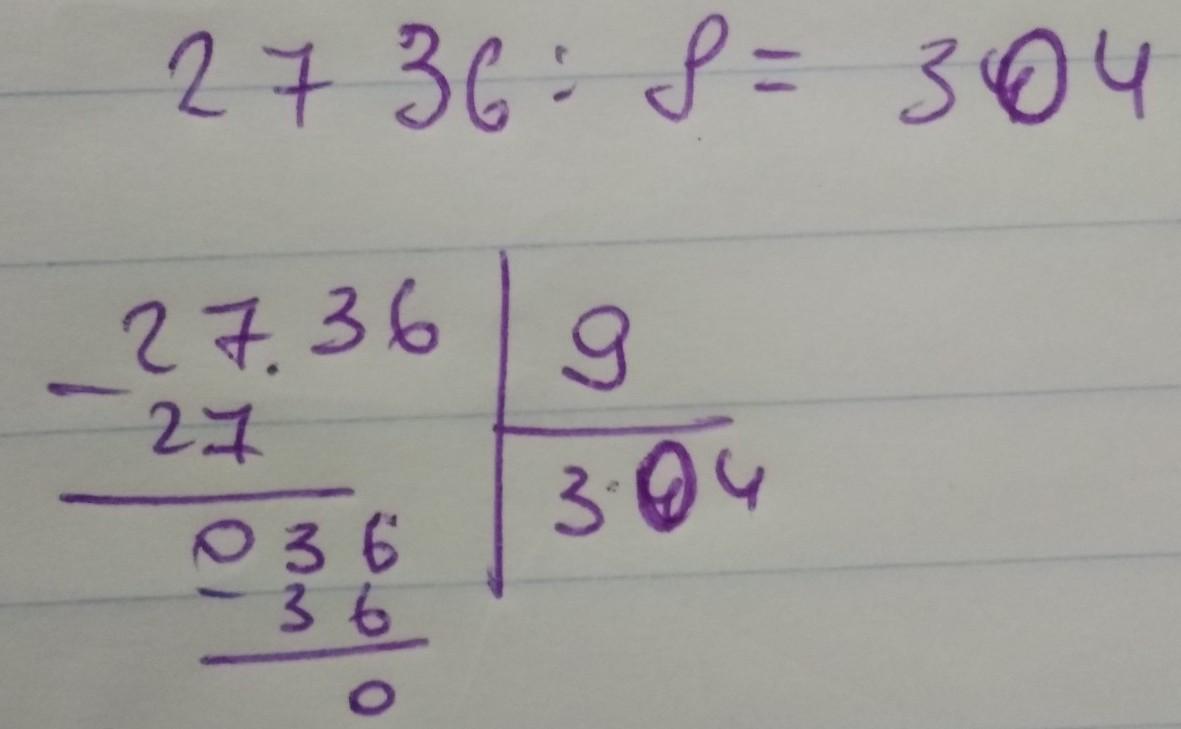 2736 : 9 = 304
27.36 | 9
- 27 | 3·04
036
- 36
0